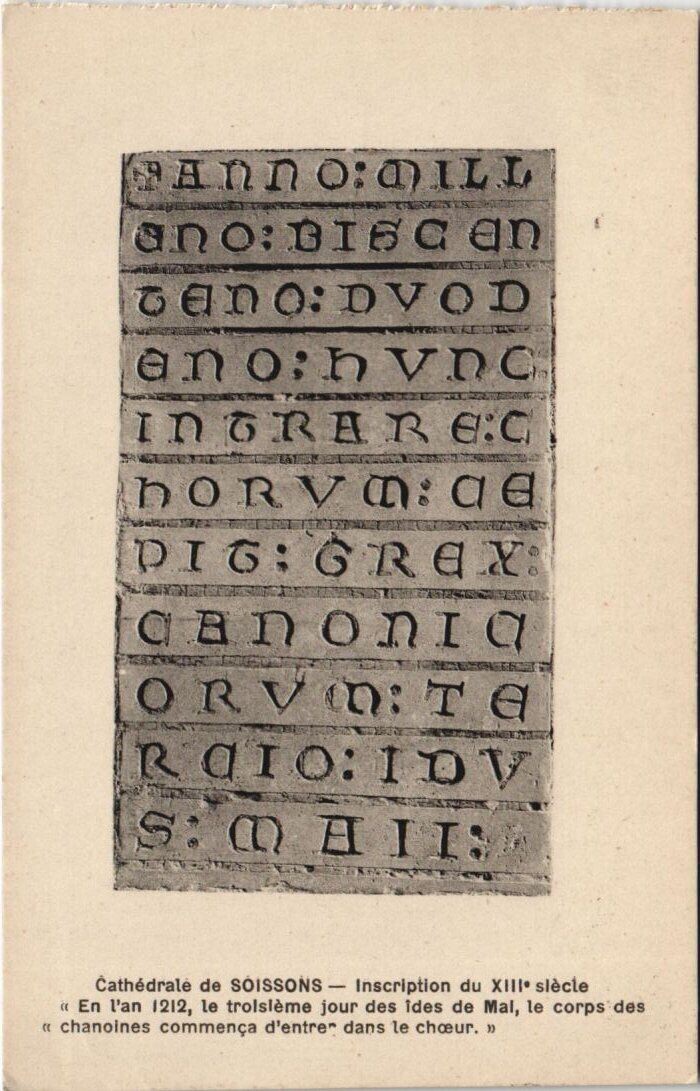 +ANNO:MILL
ENO:BISCEN
TENO:DVOD
ENO:HVNC
INTRARE:C
HORVM:CE
PIT:GREX:
CANONIC
ORVM:TE
RCIO:IDV
S:MAII:
Cathédrale de SOISSONS — Inscription du XIIIe siècle
« En l'an 1212, le troisième jour des ides de Mai, le corps des
« chanoines commença d'entrer dans le chœur. »